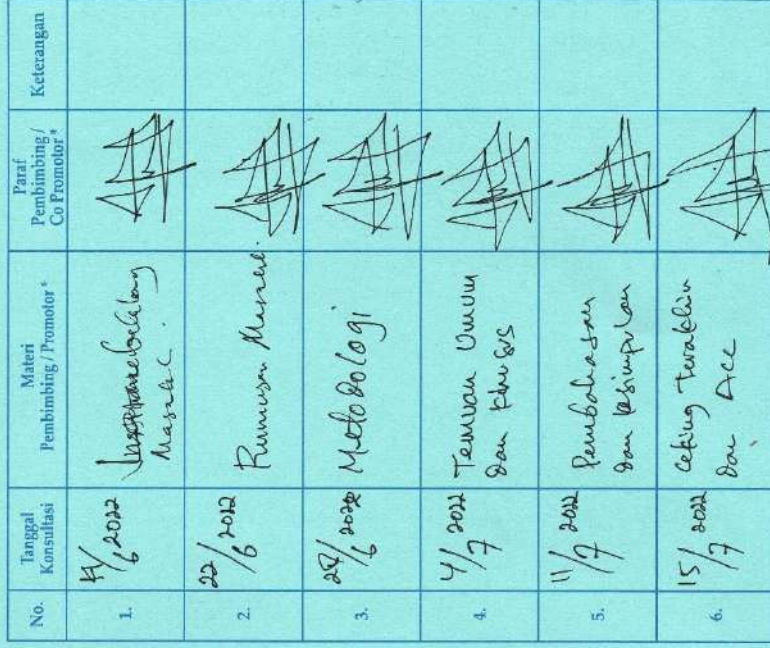 No.
Tanggal
Konsultasi
Materi
Pembimbing / Promotor *
Paraf
Pembimbing /
Co Promotor *
Keterangan
1.
/6 2022
Masalah
2.
22/6 2022
Rumusan Masalah.
3.
/6 2022
Metodologi
4.
4/7 2022
Temuan Umum
dan Khusus
5.
11/7 2022
Pembahasan
dan kesimpulan
6.
15/7 2022
Ceking Terakhir
dan Acc